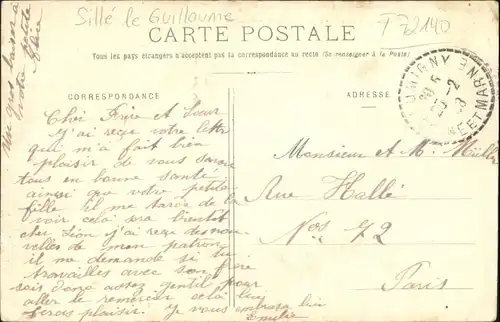 Sillé le Guillaume
T 72140
CARTE POSTALE
Tous les pays étrangers n'acceptent pas la correspondance au recto (Se renseigner à la Poste)
CORRESPONDANCE
ADRESSE
Un gros baiser a
votre petite
Cher Frère et Sœur
J'ai reçue votre lettre
qui m'a fait bien
plaisir de vous savoir
tous en bonne santé
ainsi que votre petite
fille il me tarde de la
voir cela sra bientot
cher Léon j'ai reçu des nou
velles de mon patron
il me demande si tu
travailles avec son frère
sois donc assez gentil pour
aller le remercier cela lui
feras plaisir. Je vous embrasse bien
Emilie
Monsieur A M. Müller
Rue Hallé
Nos 72
Paris
ET MARNE